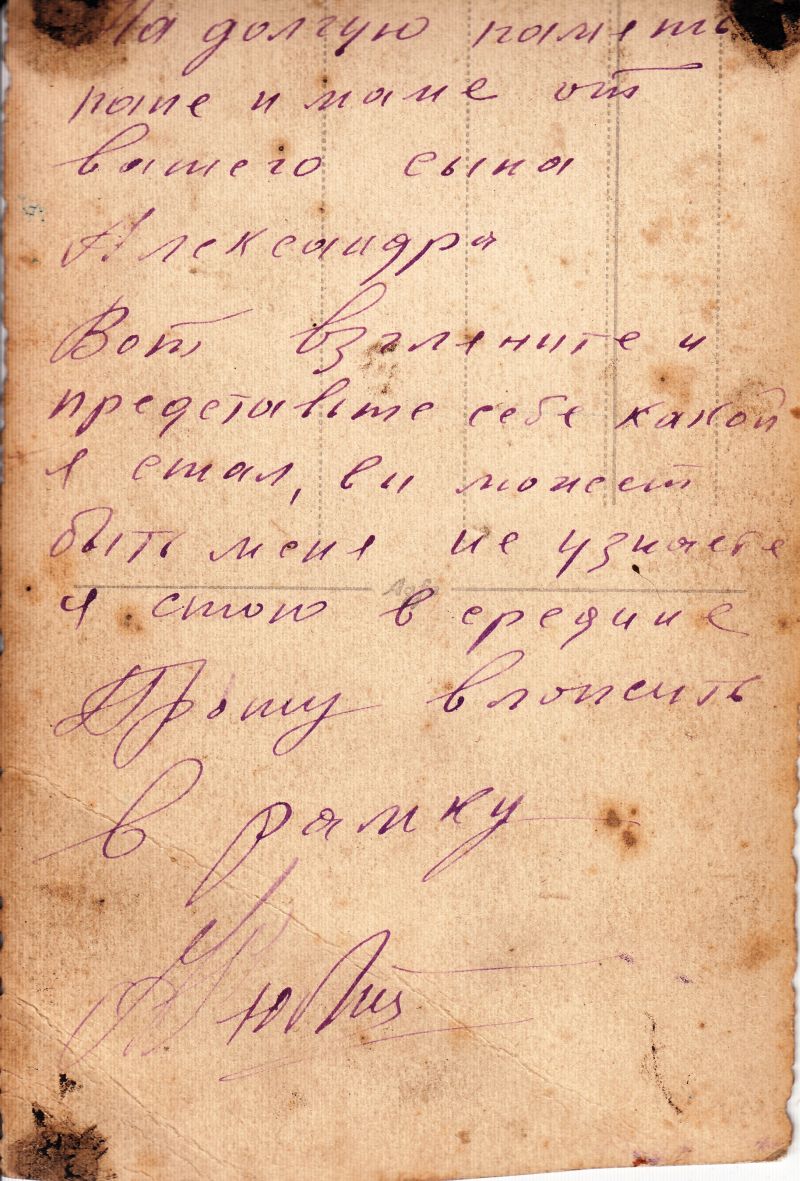 На долгую паметь
папе и маме от
вашего сына
Александра
Вот взгляните и
представьте себе какой
я стал, ви может
быть меня не узнаете
я стою в средине
Прошу вложить
в рамку